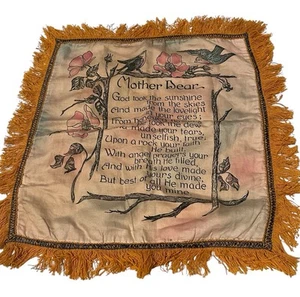 Mother Dear
God took the sunshine
from the skies
And made the lovelight
of your eyes;
From
he made your tears,
unselfish, true
Upon a rock your faith
He built,
With angel prayers your
breath He filled,
And with his love made
yours divine,
But best of all He made
you mine.